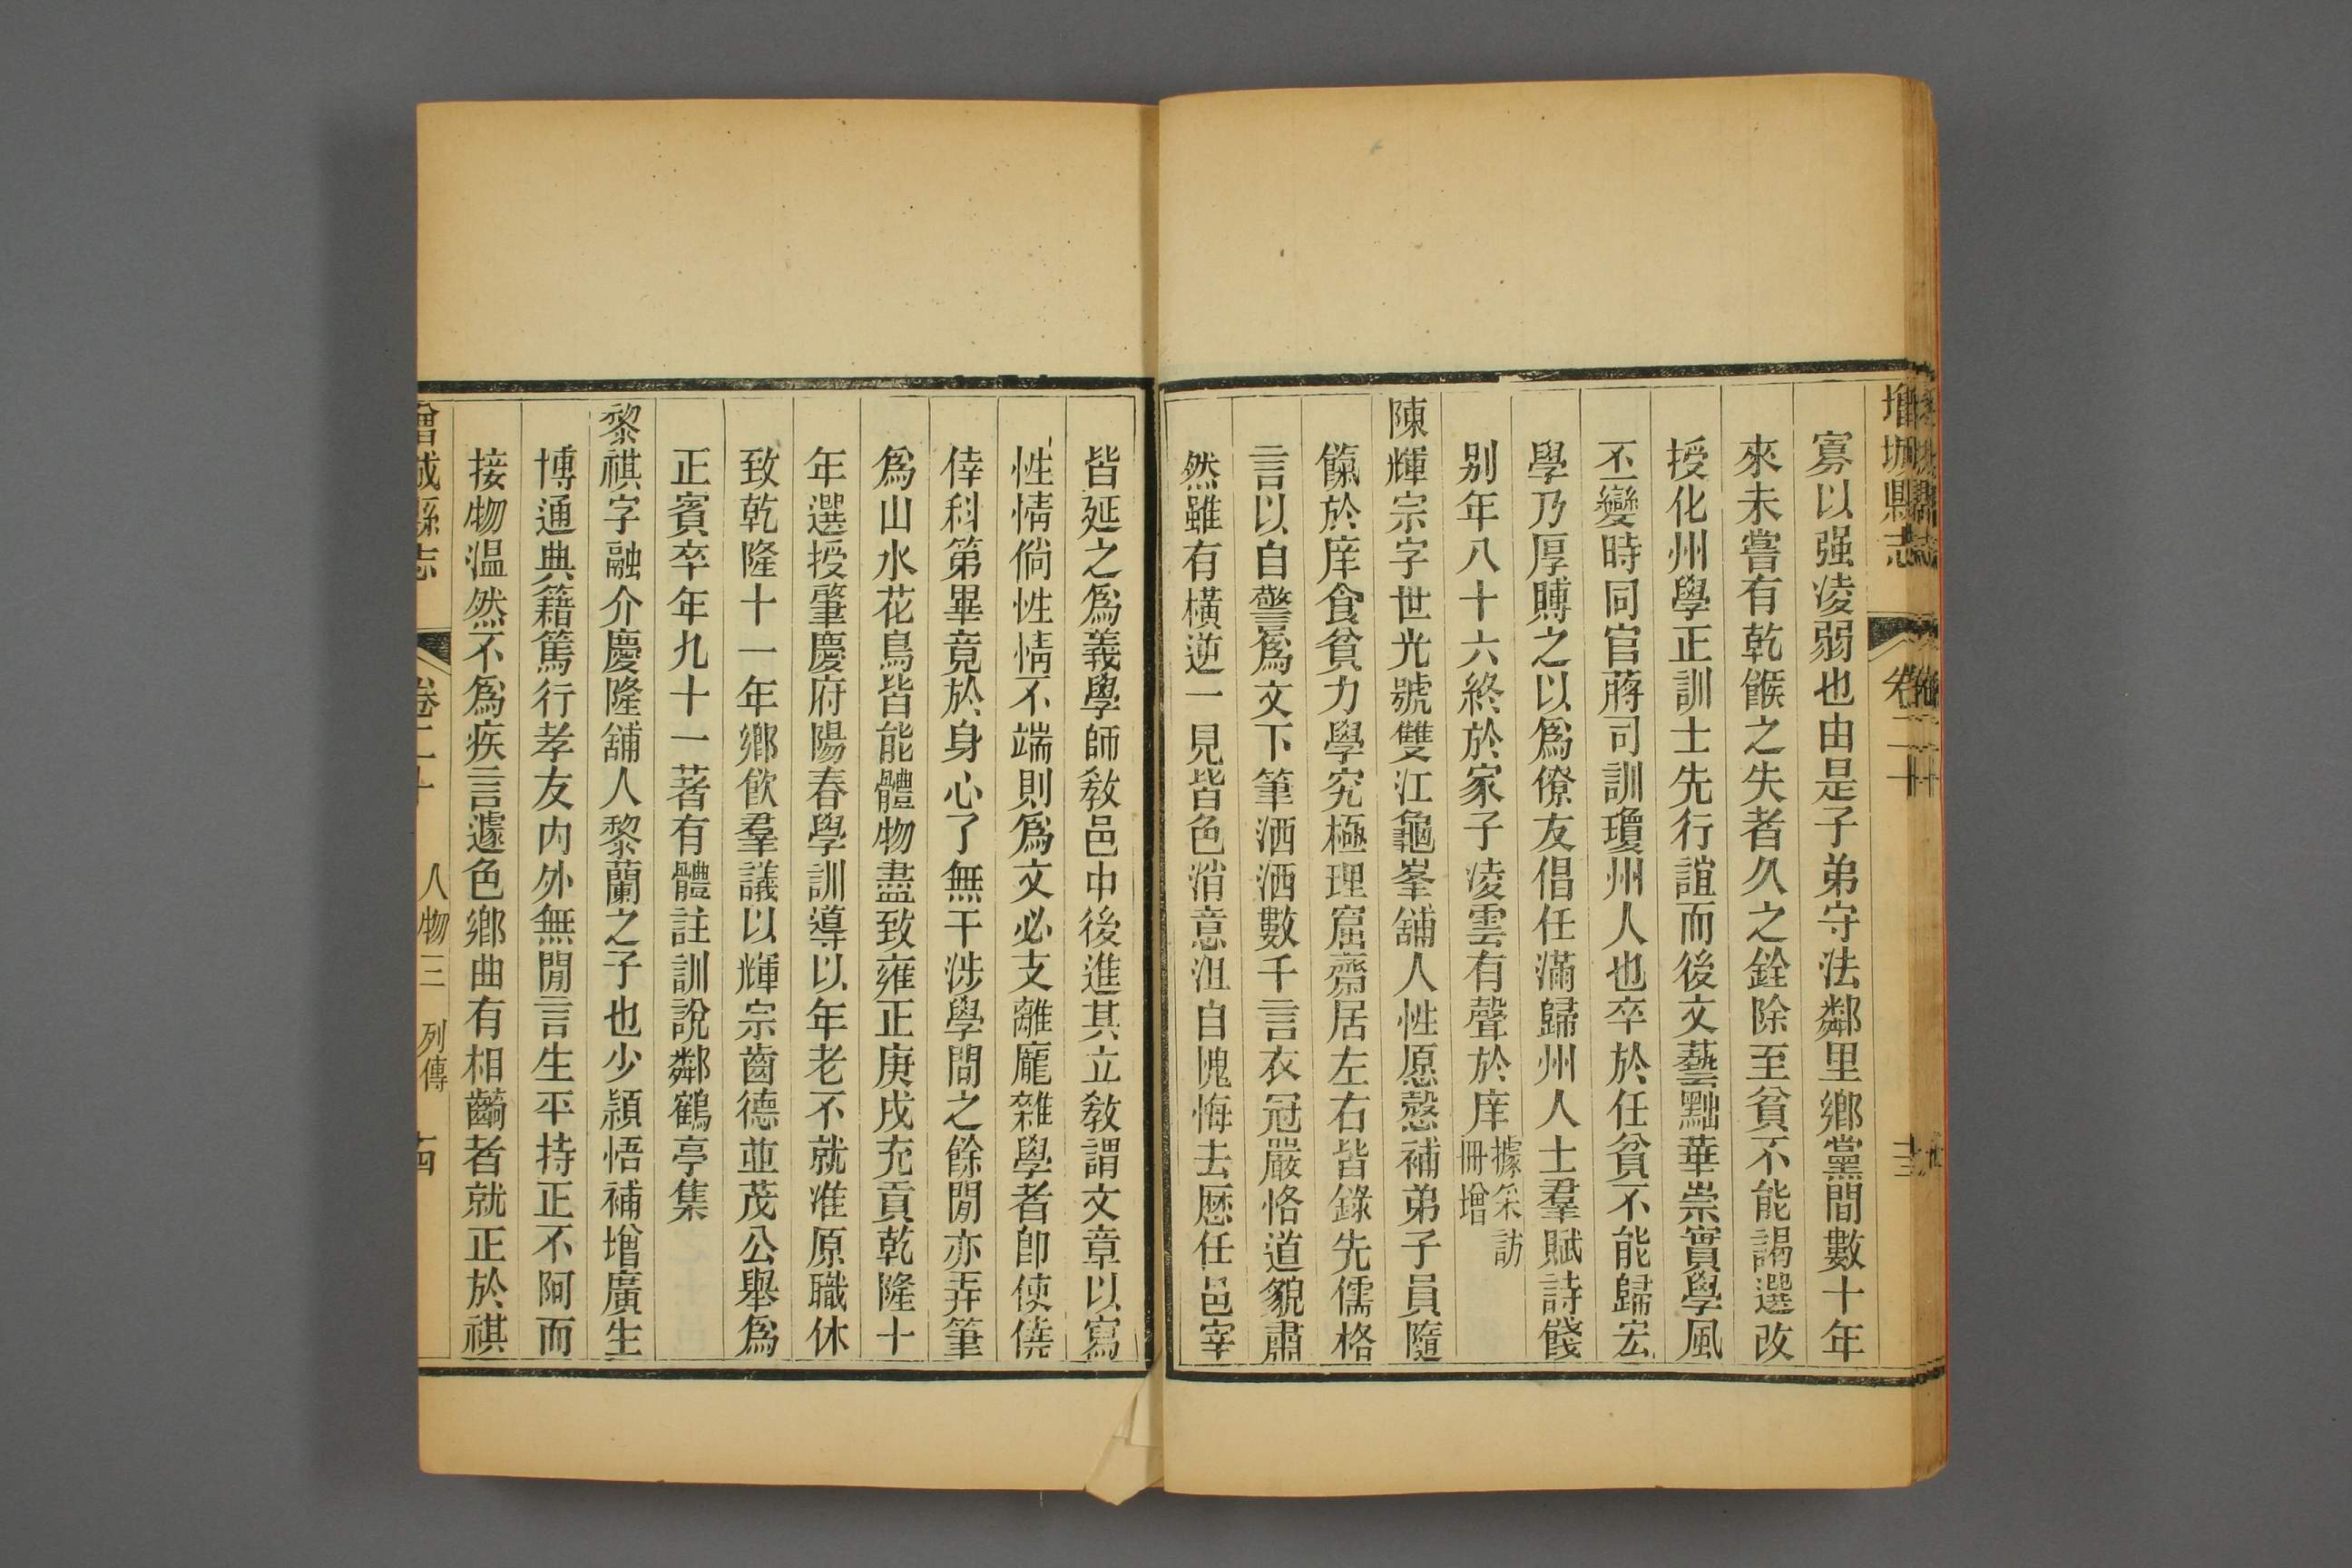 增城縣志
卷二十
十三
寡以强凌弱也由是子弟守法鄰里鄉黨間數十年
來未嘗有乾餱之失者久之銓除至貧不能謁選改
授化州學正訓士先行誼而後文藝黜華崇實學風
丕變時同官蔣司訓瓊州人也卒於任貧不能歸宏
學乃厚賻之以爲僚友倡任滿歸州人士羣賦詩餞
别年八十六終於家子凌雲有聲於庠據采訪冊增
陳輝宗字世光號雙江龜峯舖人性愿慤補弟子員隨
餼於庠食貧力學究極理窟齋居左右皆錄先儒格
言以自警爲文下筆洒洒數千言衣冠嚴恪道貌肅
然雖有橫逆一見皆色消意沮自愧悔去歴任邑宰
皆延之爲義學師敎邑中後進其立敎謂文章以寫
性情倘性情不端則爲文必支離龐雜學者卽使僥
倖科第畢竟於身心了無干涉學問之餘閒亦弄筆
爲山水花鳥皆能體物盡致雍正庚戌充貢乾隆十
年選授肇慶府陽春學訓導以年老不就准原職休
致乾隆十一年鄉飮羣議以輝宗齒德並茂公舉爲
正賓卒年九十一著有體註訓說鄰鶴亭集
黎祺字融介慶隆舖人黎蘭之子也少穎悟補增廣生
博通典籍篤行孝友内外無閒言生平持正不阿而
接物温然不爲疾言遽色鄉曲有相齮者就正於祺
增城縣志
卷二十
人物三 列傳
十四